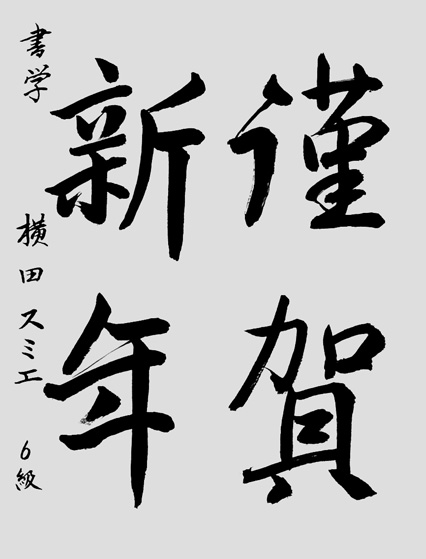 謹賀
新年
書学 横田スミエ 6級